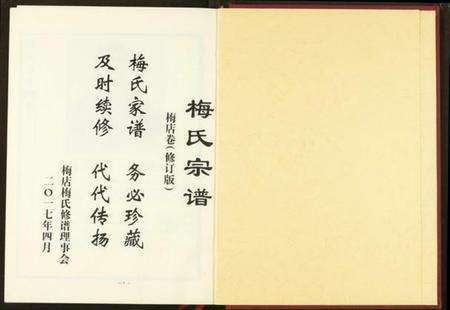 梅氏宗谱
梅店卷(修订版)
梅氏家谱 务必珍藏
及时续修 代代传扬
梅店梅氏修谱理事会
二〇一七年四月